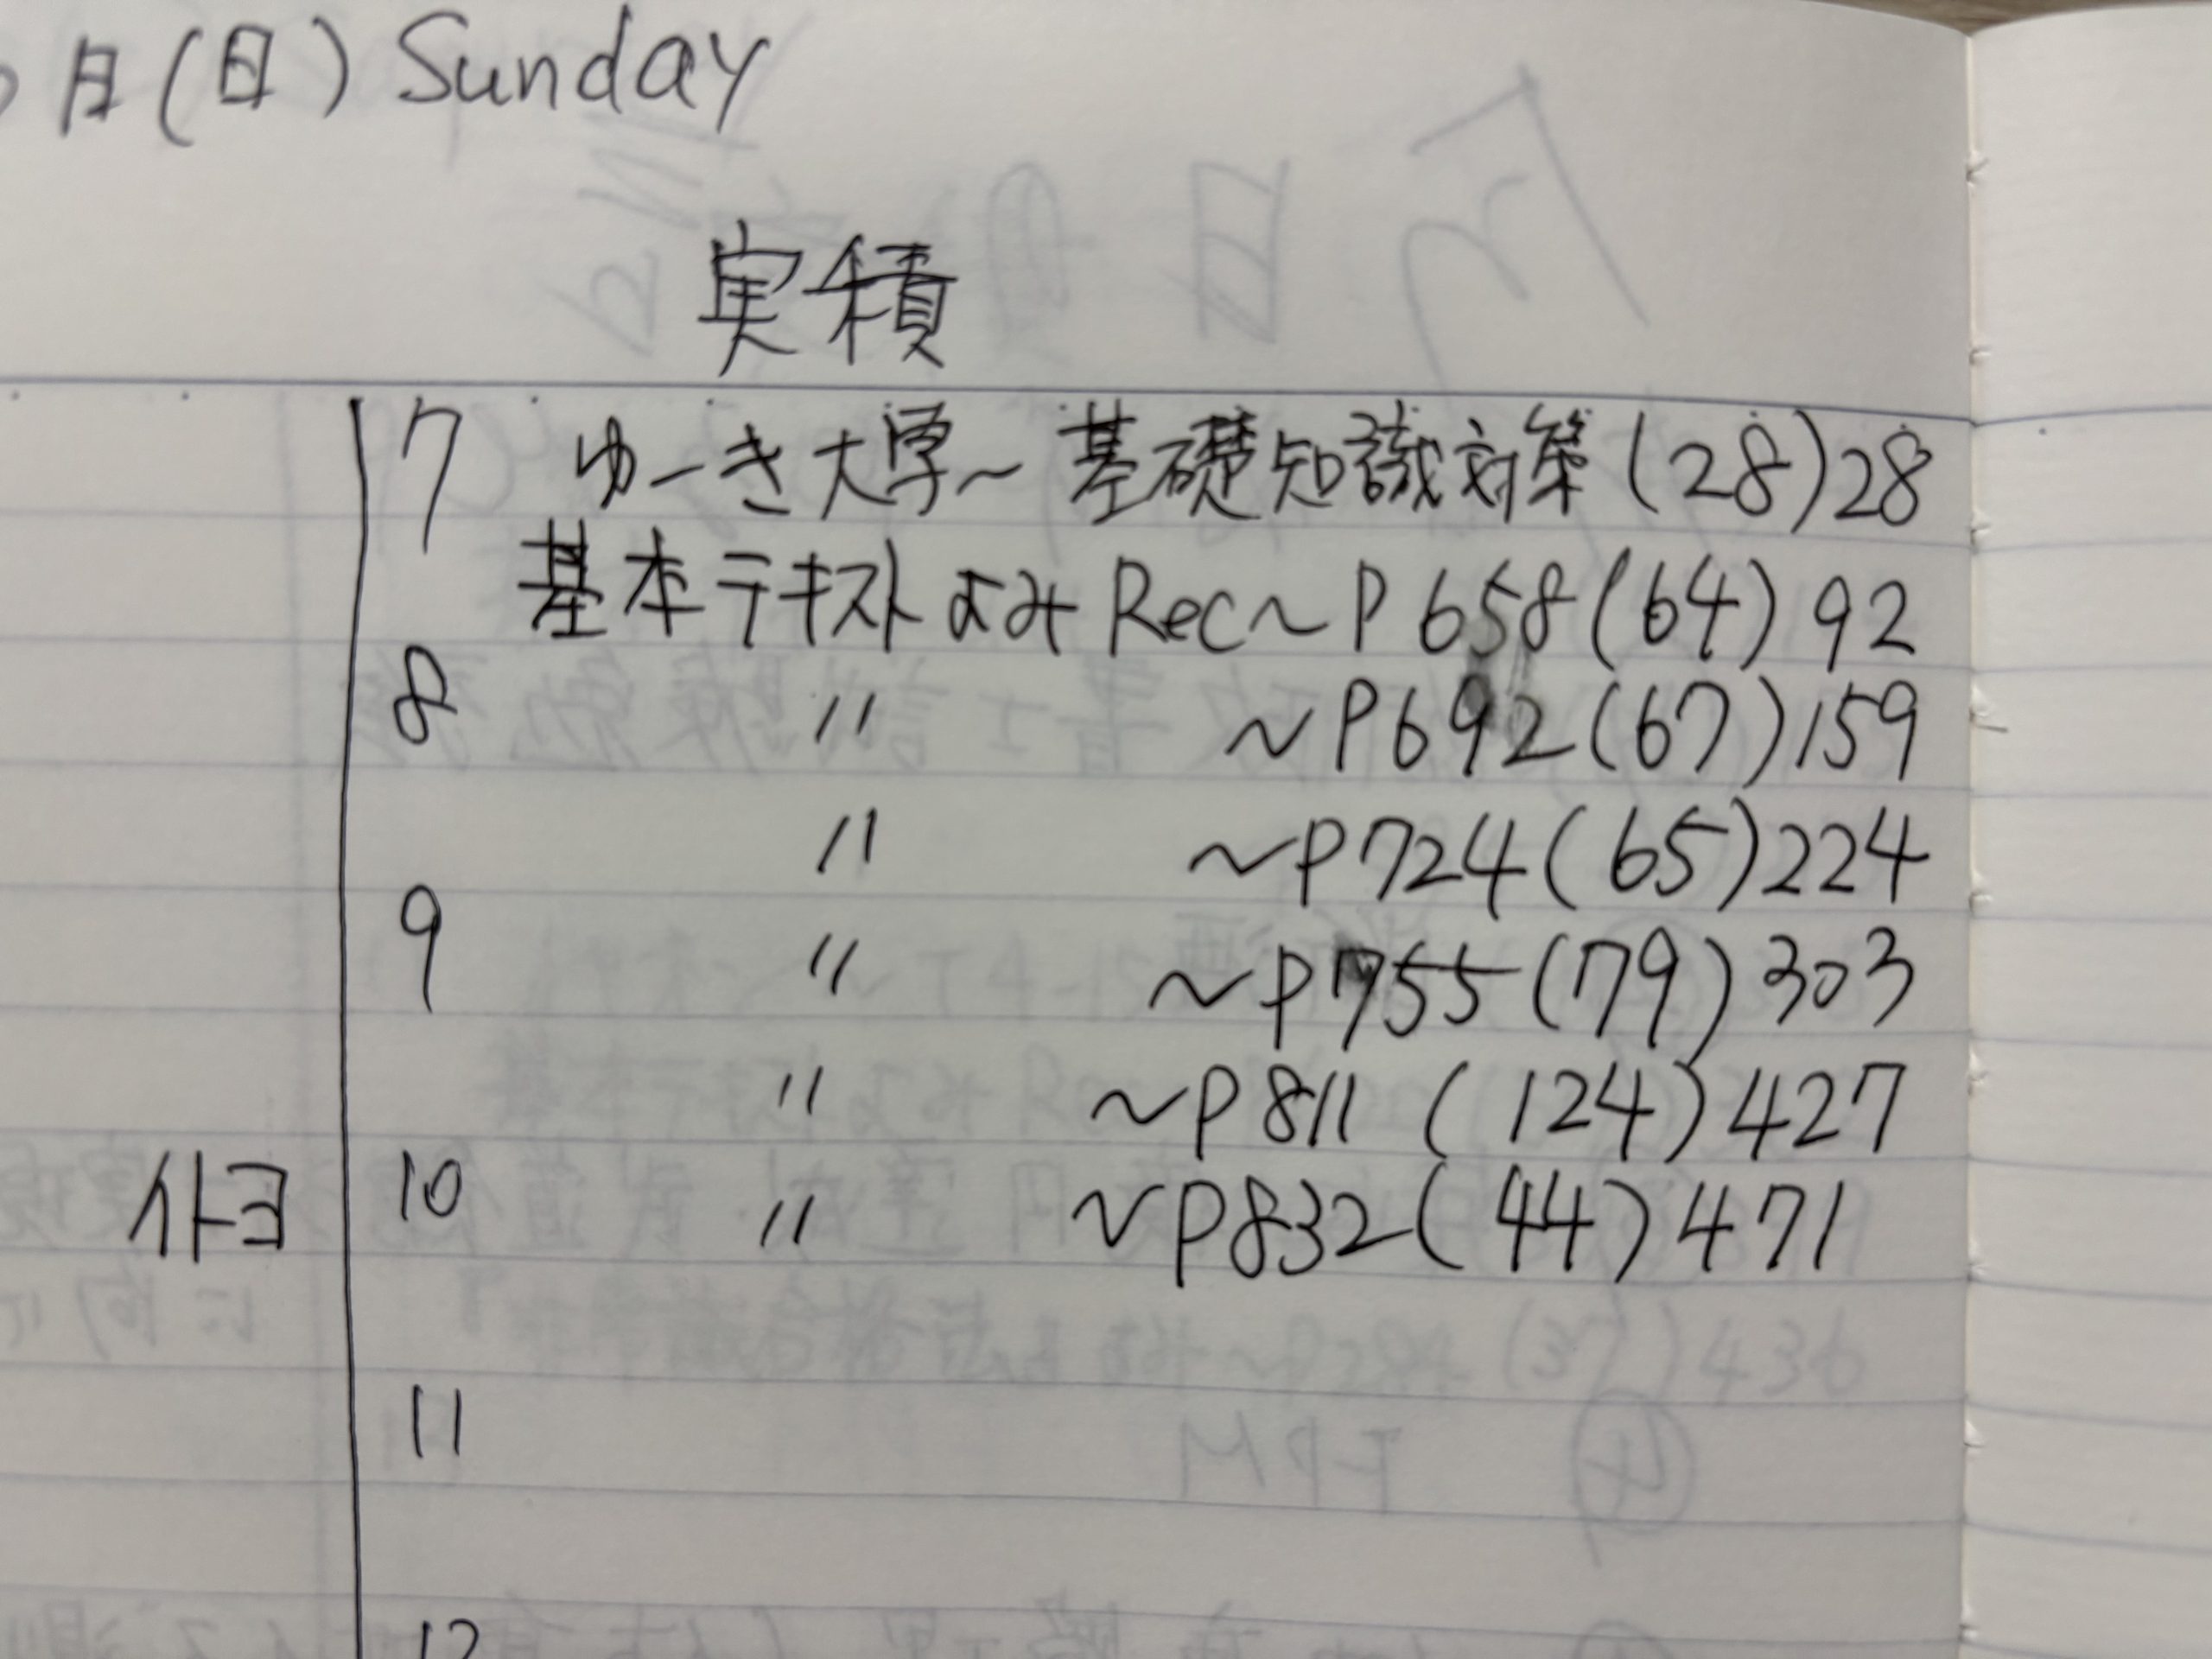 月(日) Sunday
実積
7 ゆーき大学~基礎知識対策(28)28
基本テキストよみRec~P658(64)92
8 〃 ~P692(67)159
〃 ~P724(65)224
9 〃 ~P755(79)303
〃 ~P811(124)427
10 〃 ~P832(44)471
11
12